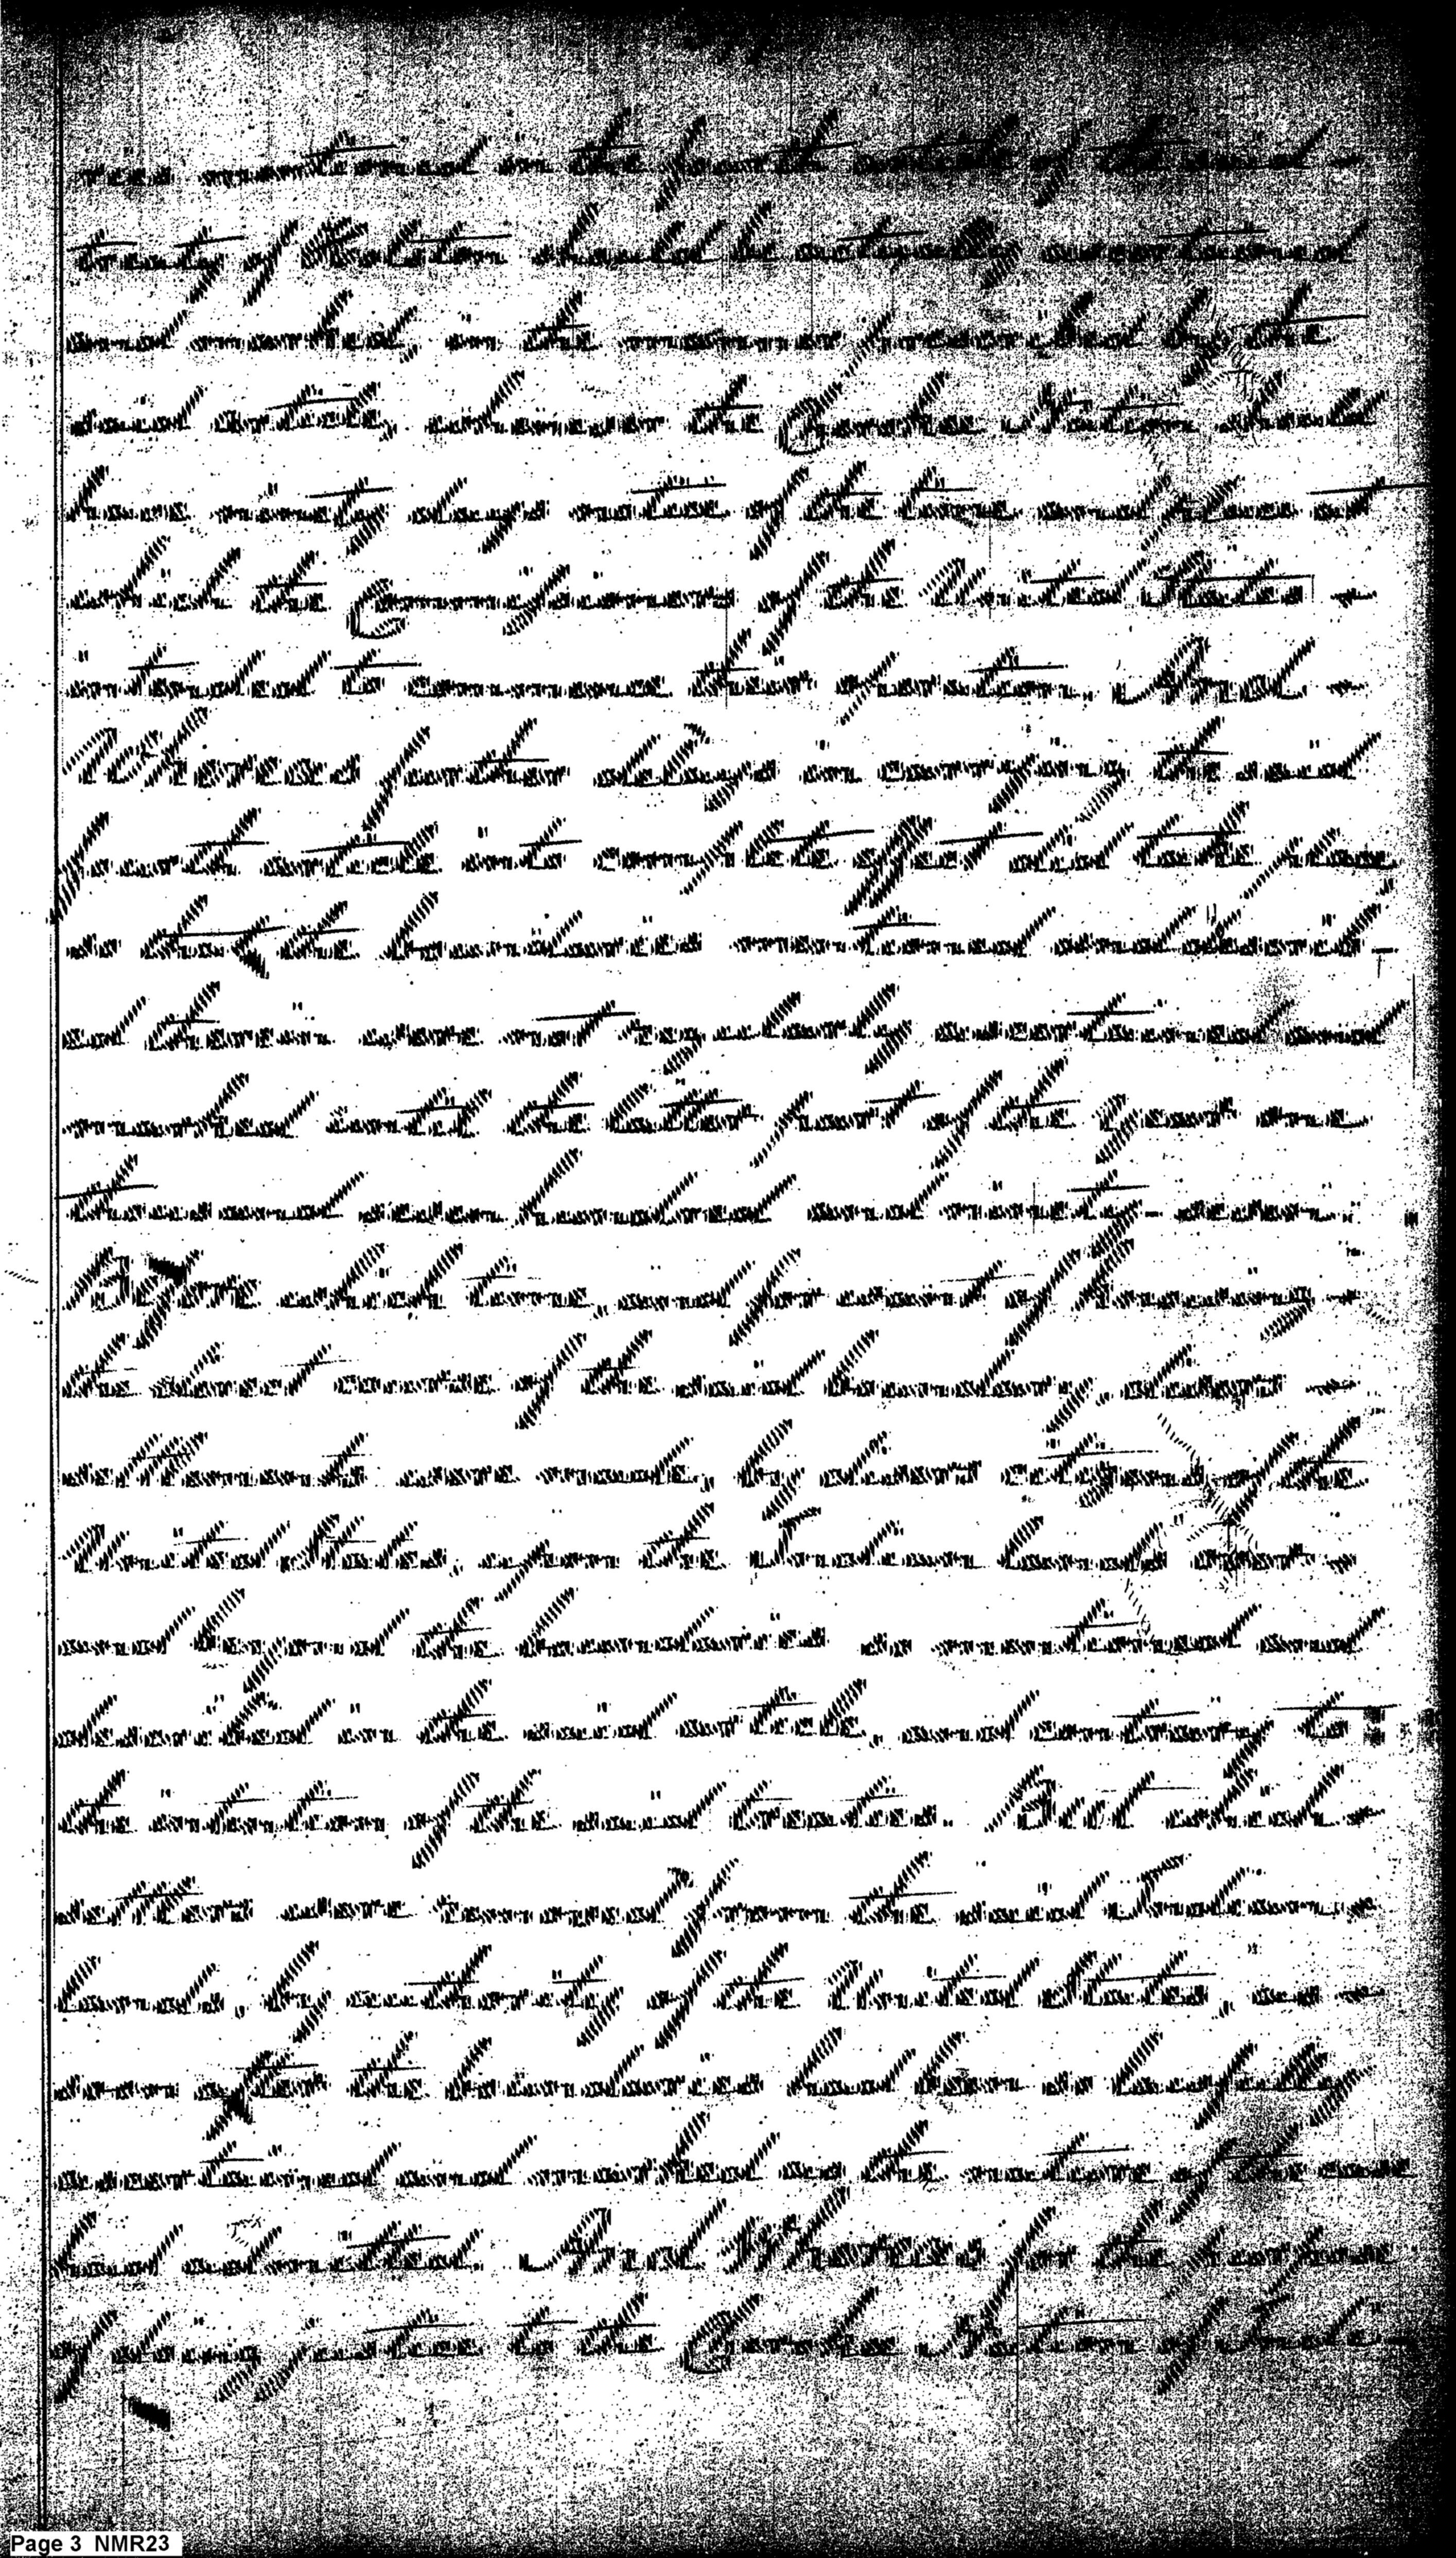 ries mentioned in the fourth article of the said
treaty of Holston should be actually ascertained
and marked, in the manner prescribed by the
said article, whenever the Cherokee Nation should
have ninety days notice of the time and place at
which the Commissioners of the United States
intended to commence their operation. And
Whereas further delays in carrying the said
fourth article into complete effect did take place
so that the boundaries mentioned and describ-
ed therein were not regularly ascertained and
marked until the latter part of the year one
thousand seven hundred and ninety-seven:
Before which time, and for want of knowing
the direct course of the said boundary, divers
settlements were made, by divers citizens of the
United States, upon the Indian lands over
and beyond the boundaries so mentioned and
described in the said article, and contrary to
the intention of the said treaties. But which
settlers were removed from the said Indian
lands, by authority of the United States, as
soon after the boundaries had been so lawfully
ascertained and marked as the nature of the case
had admitted. And Whereas for the purpose
of doing justice to the Cherokee Nation of Indi-
Page 3 NMR23